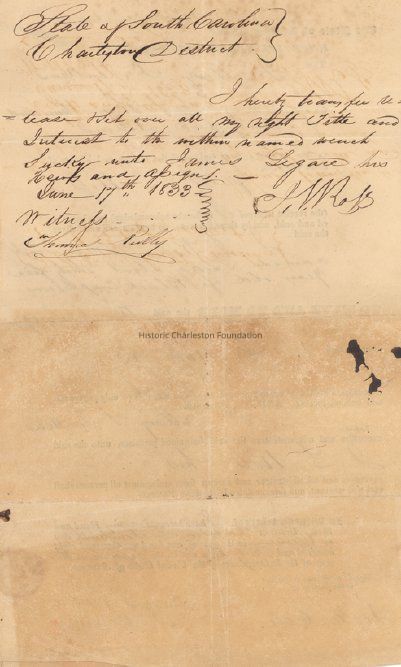 State of South Carolina }
Charleston District. }
I hereby transfer re-
=lease & Set over all my right Title and
Interest to the within named wench
Lucky unto James Legare his
Heirs and Assigns —
June 17th 1833
Witness
Thomas
Historic Charleston Foundation